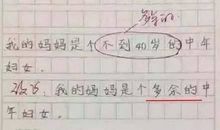 多余的
我的妈妈是个不到40岁的中年
妇女。
改:我的妈妈是个多余的中
年妇女。